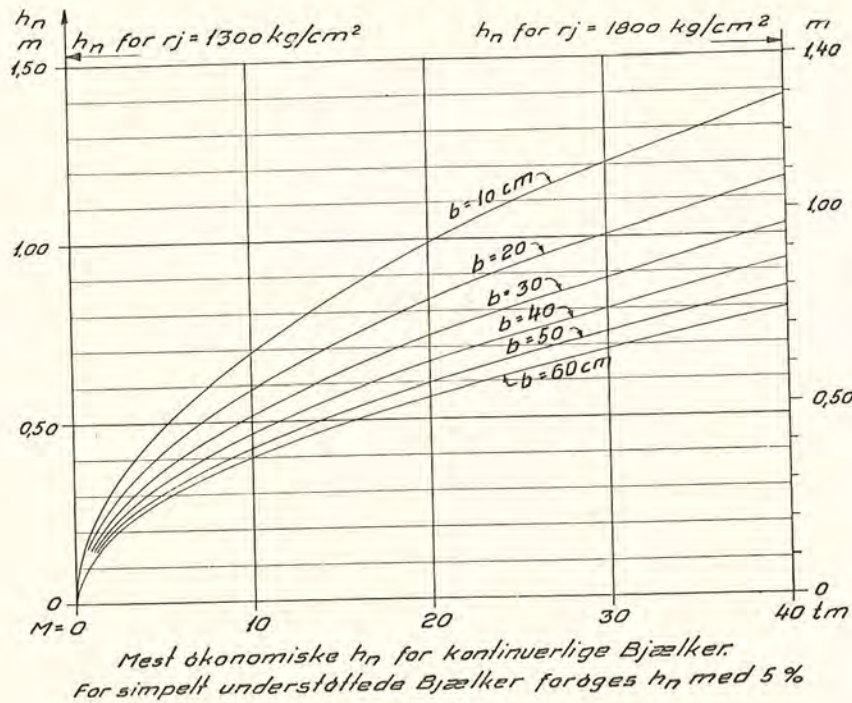 h_n
m
h_n for rj = 1300 kg/cm²
h_n for rj = 1800 kg/cm²
m
1,50
1,40
b = 10 cm
1,00
1,00
b = 20
b = 30
b = 40
b = 50
b = 60 cm
0,50
0,50
0
0
M = 0
10
20
30
40 tm
Mest ökonomiske h_n for kontinuerlige Bjælker.
For simpelt understöttede Bjælker foröges h_n med 5 %